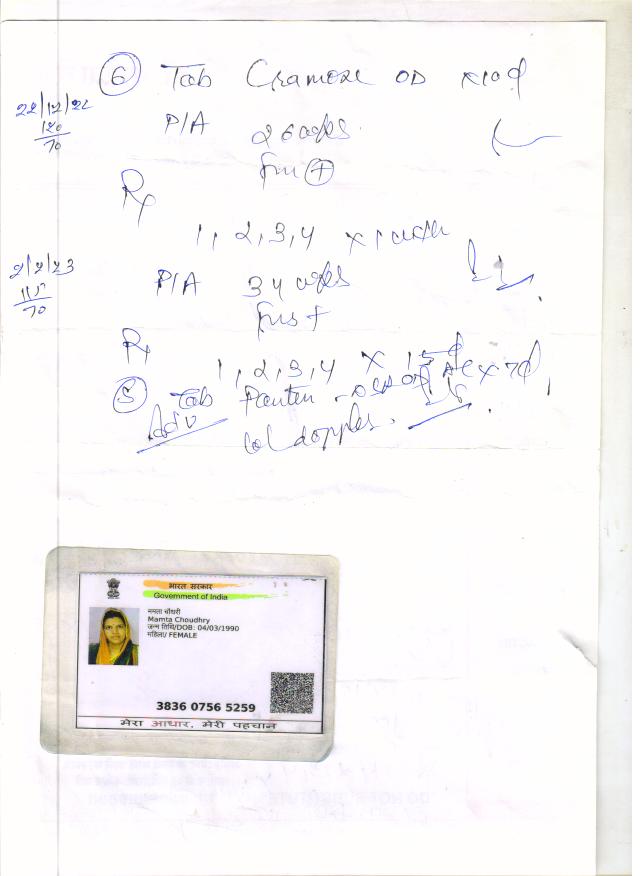 6 Tab Cramore OD x 10 d
22/12/22
120/70
P/A 26 wks
FMS +
Rx
1, 2, 3, 4 x 1 month
2/2/23
115/70
P/A 34 wks
FMS +
Rx
1, 2, 3, 4 x 15 d
5 Tab x 7 d
Adv
Col doppler.
भारत सरकार
Government of India
ममता चौधरी
Mamta Choudhry
जन्म तिथि/DOB: 04/03/1990
महिला/ FEMALE
3836 0756 5259
मेरा आधार, मेरी पहचान